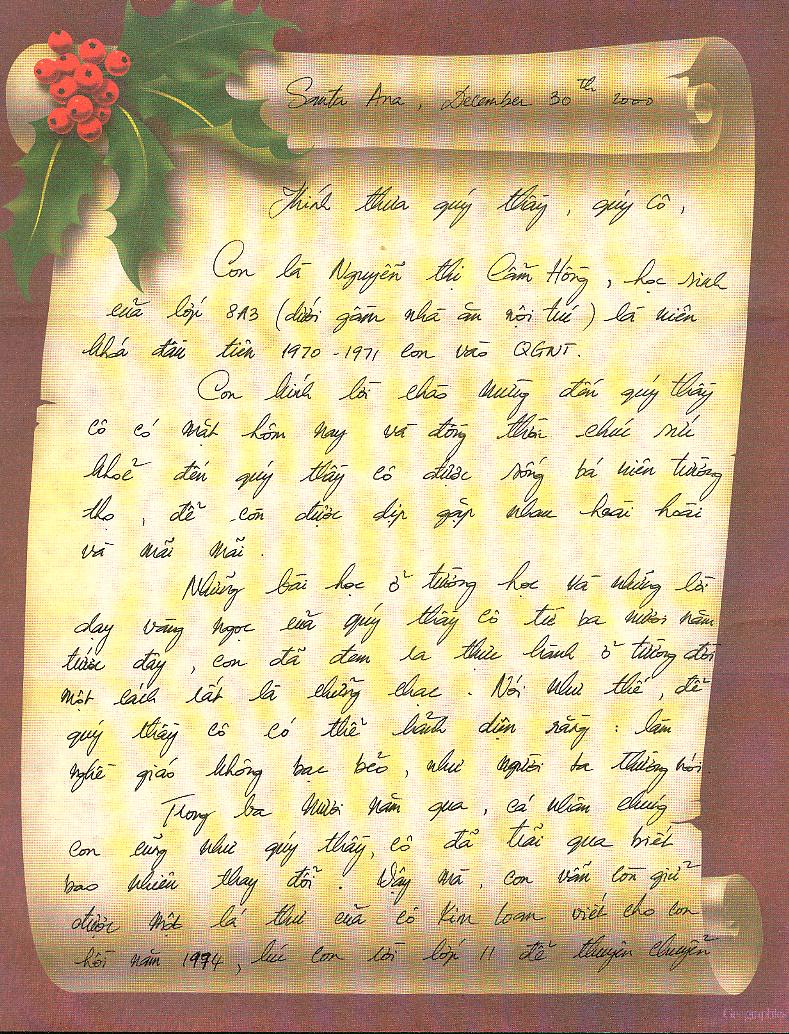 Santa Ana, December 30th 2000
Kính thưa quý thầy, quý cô,
Con là Nguyễn thị Cẩm Hồng, học sinh
của lớp 8A3 (dưới gầm nhà ăn nội trú) là niên
khoá đầu tiên 1970-1971 con vào QGNT.
Con kính lời chào mừng đến quý thầy
cô có mặt hôm nay và đồng thời chúc sức
khoẻ đến quý thầy cô được sống bá niên trường
thọ, để con được dịp gặp nhau hoài hoài
và mãi mãi.
Những bài học ở trường học và những lời
dạy vàng ngọc của quý thầy cô từ ba mươi năm
trước đây, con đã đem ra thực hành ở trường đời
một cách rất là chững chạc. Nói như thế, để
quý thầy cô có thể hãnh diện rằng: làm
nghề giáo không bạc bẽo, như người ta thường nói.
Trong ba mươi năm qua, cá nhân chúng
con cũng như quý thầy, cô đã trải qua biết
bao nhiêu thay đổi. Vậy mà, con vẫn còn giữ
được một lá thư của cô Kim Loan viết cho con
hồi năm 1974, lúc con rời lớp 11 để thuyên chuyển